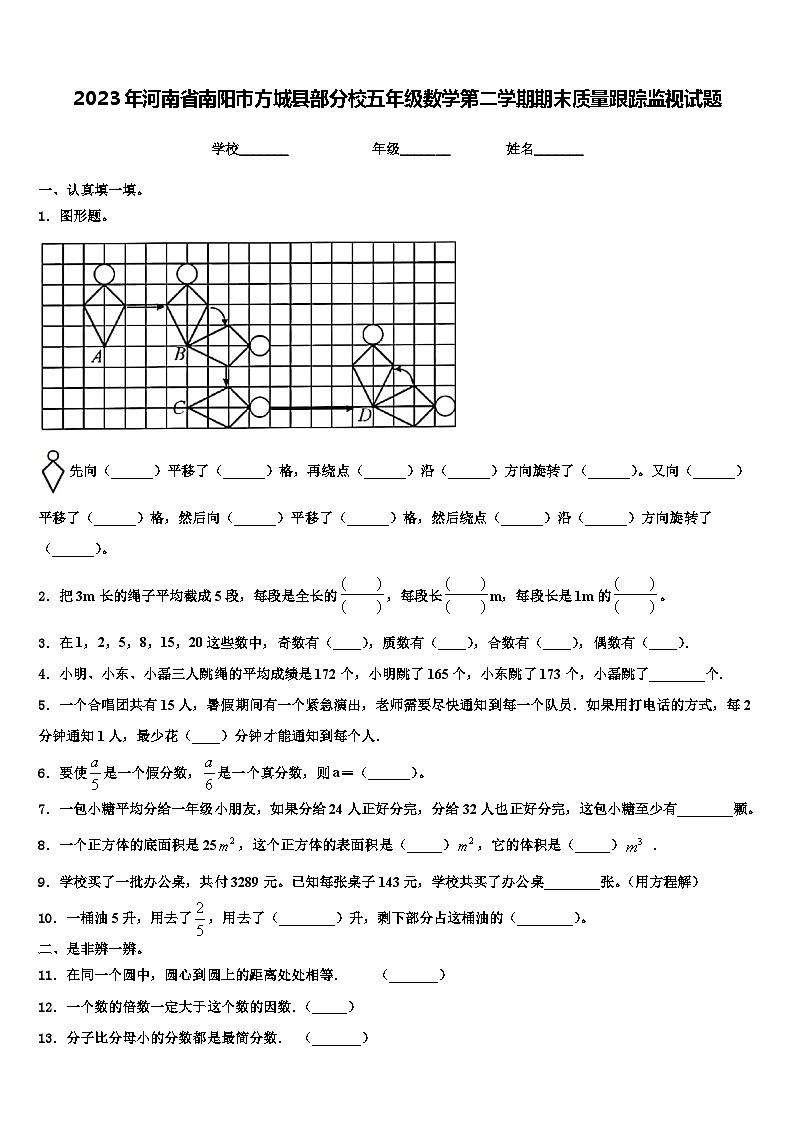 2023年河南省南阳市方城县部分校五年级数学第二学期期末质量跟踪监视试题
学校_______ 年级_______ 姓名_______
一、认真填一填。
1．图形题。
A
B
C
D
先向（______）平移了（______）格，再绕点（______）沿（______）方向旋转了（______）。又向（______）
平移了（______）格，然后向（______）平移了（______）格，然后绕点（______）沿（______）方向旋转了
（______）。
2．把3m长的绳子平均截成5段，每段是全长的(  )/(  )，每段长(  )/(  )m，每段长是1m的(  )/(  )。
3．在1，2，5，8，15，20这些数中，奇数有（____），质数有（____），合数有（____），偶数有（____）．
4．小明、小东、小磊三人跳绳的平均成绩是172个，小明跳了165个，小东跳了173个，小磊跳了________个．
5．一个合唱团共有15人，暑假期间有一个紧急演出，老师需要尽快通知到每一个队员．如果用打电话的方式，每2
分钟通知1人，最少花（____）分钟才能通知到每个人．
6．要使a/5是一个假分数，a/6是一个真分数，则a＝（______）。
7．一包小糖平均分给一年级小朋友，如果分给24人正好分完，分给32人也正好分完，这包小糖至少有________颗。
8．一个正方体的底面积是25m²，这个正方体的表面积是（_____）m²，它的体积是（_____）m³ ．
9．学校买了一批办公桌，共付3289元。已知每张桌子143元，学校共买了办公桌________张。（用方程解）
10．一桶油5升，用去了2/5，用去了（________）升，剩下部分占这桶油的（________）。
二、是非辨一辨。
11．在同一个圆中，圆心到圆上的距离处处相等． （_______）
12．一个数的倍数一定大于这个数的因数．（_____）
13．分子比分母小的分数都是最简分数． （_______）